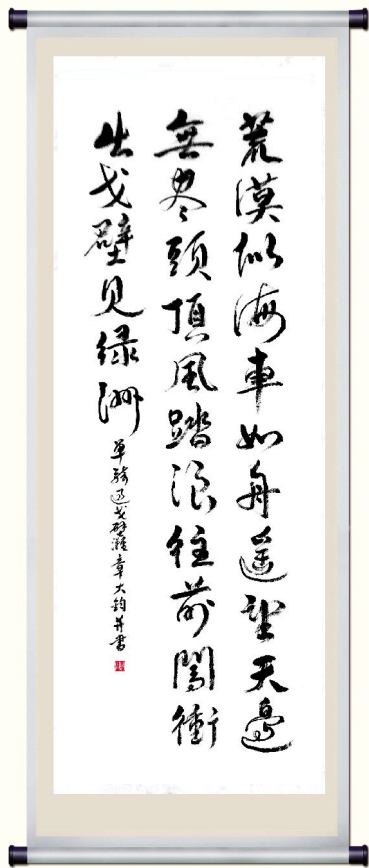 荒漠似海車如舟遥望天邊
無尽頭頂風踏浪往前闖衝
出戈壁见绿洲
单騎过戈壁灘章大鈞并書